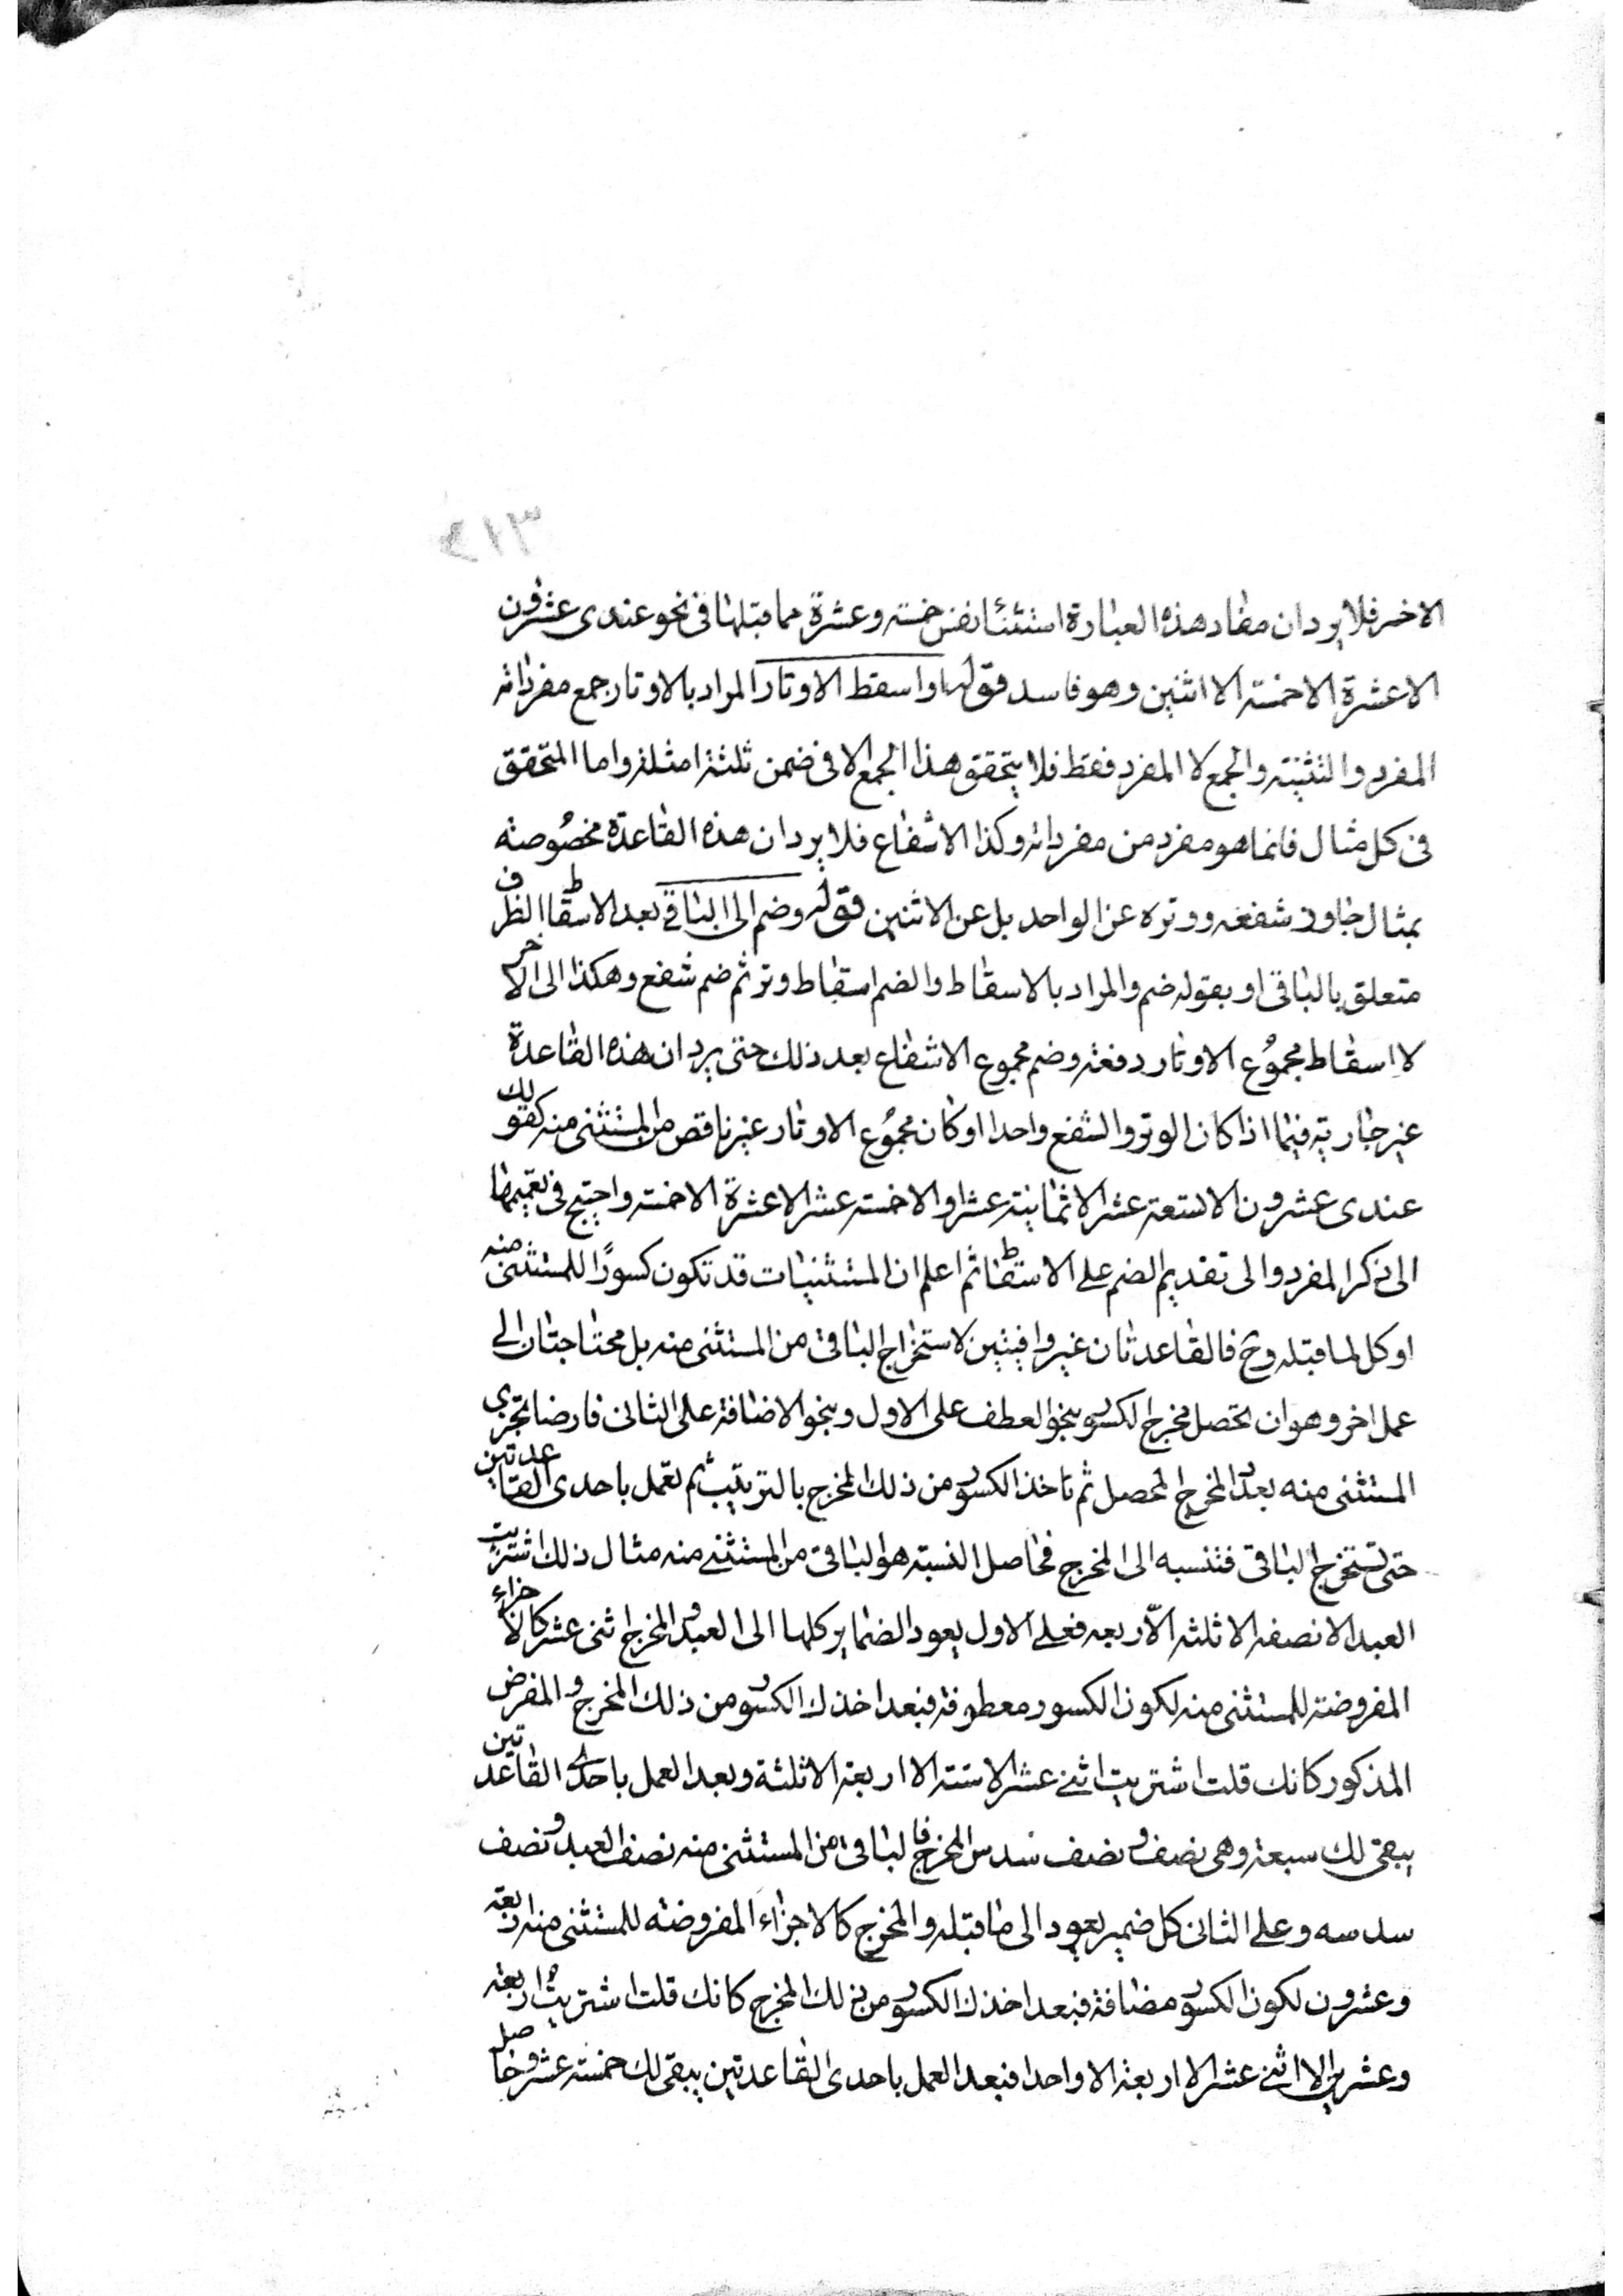 ٢١٣
الاخر فلا يرد ان مفاد هذه العبارة استثنا نفس خمسة وعشرة مما قبلها فى نحو عندى عشرون
الا عشرة الا خمسة الا اثنين وهو فاسد قوله واسقط الاوتار المراد بالاوتار جمع مفرداته
المفرد والتثنية والجمع لا المفرد فقط فلا يتحقق هذا الجمع الا فى ضمن ثلثة امثلة واما المتحقق
فى كل مثال فانما هو مفرد من مفرداته وكذا الاشفاع فلا يرد ان هذه القاعدة مخصوصة
بمثال جاوز شفعه ووتره عن الواحد بل عن الاثنين قوله وضم الى الباقى بعد الاسقاط الظرف
متعلق بالباقى او بقوله ضم والمراد بالاسقاط والضم اسقاط وتر ثم ضم شفع وهكذا الى الاخر
لا اسقاط مجموع الاوتار دفعة وضم مجموع الاشفاع بعد ذلك حتى يرد ان هذه القاعدة
غير جارية فيما اذا كان الوتر والشفع واحدا او كان مجموع الاوتار غير ناقص من المستثنى منه كقولك
عندى عشرون الا تسعة عشر الا ثمانية عشر او الا خمسة عشر الا عشرة الا خمسة واحتيج فى تعميمها
الى ذكر المفرد والى تقديم الضم على الاسقاط ثم اعلم ان المستثنيات قد تكون كسورًا للمستثنى منه
او كل لما قبله وح فالقاعدتان غير وافيتين لاستخراج الباقى من المستثنى منه بل محتاجتان الى
عمل اخر وهو ان تحصل مخرج الكسور بنحو العطف على الاول وبنحو الاضافة على الثانى فارضا تجزى
المستثنى منه بعدد المخرج المحصل ثم تاخذ الكسور من ذلك المخرج بالترتيب ثم تعمل باحدى القاعدتين
حتى تستخرج الباقى فتنسبه الى المخرج فحاصل النسبة هو الباقى من المستثنى منه مثال ذلك اشتريت
العبد الا نصفه الا ثلثه الّا ربعه فعلى الاول يعود الضماير كلها الى العبد والمخرج اثنى عشر كالاجزاء
المفروضة للمستثنى منه لكون الكسور معطوفة فبعد اخذك الكسور من ذلك المخرج والمفرض
المذكور كانك قلت اشتريت اثنى عشر الا ستة الا اربعة الا ثلثة وبعد العمل باحدى القاعدتين
يبقى لك سبعة وهى نصف ونصف سدس المخرج فالباقى من المستثنى منه نصف العبد ونصف
سدسه وعلى الثانى كل ضمير يعود الى ما قبله والمخرج كالاجزاء المفروضة للمستثنى منه اربعة
وعشرون لكون الكسور مضافة فبعد اخذك الكسور من ذلك المخرج كانك قلت اشتريت اربعة
وعشرين الا اثنى عشر الا اربعة الا واحدا فبعد العمل باحدى القاعدتين يبقى لك خمسة عشر وحاصل